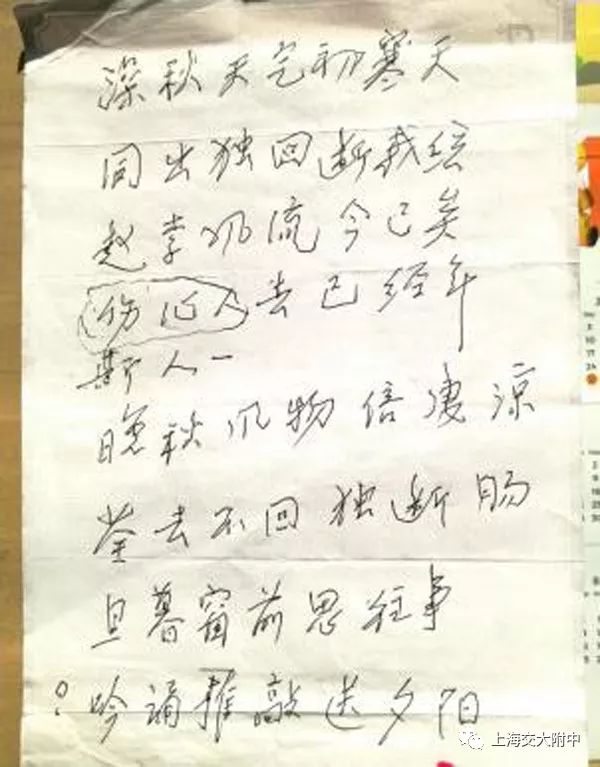 深秋天初寒天
同出独回断我
赵李风流今已矣
伤心人去已经年
斯人一
晚秋风物倍凄凉
荃去不回独断肠
旦暮窗前思往事
吟诵推敲送夕阳
上海交大附中